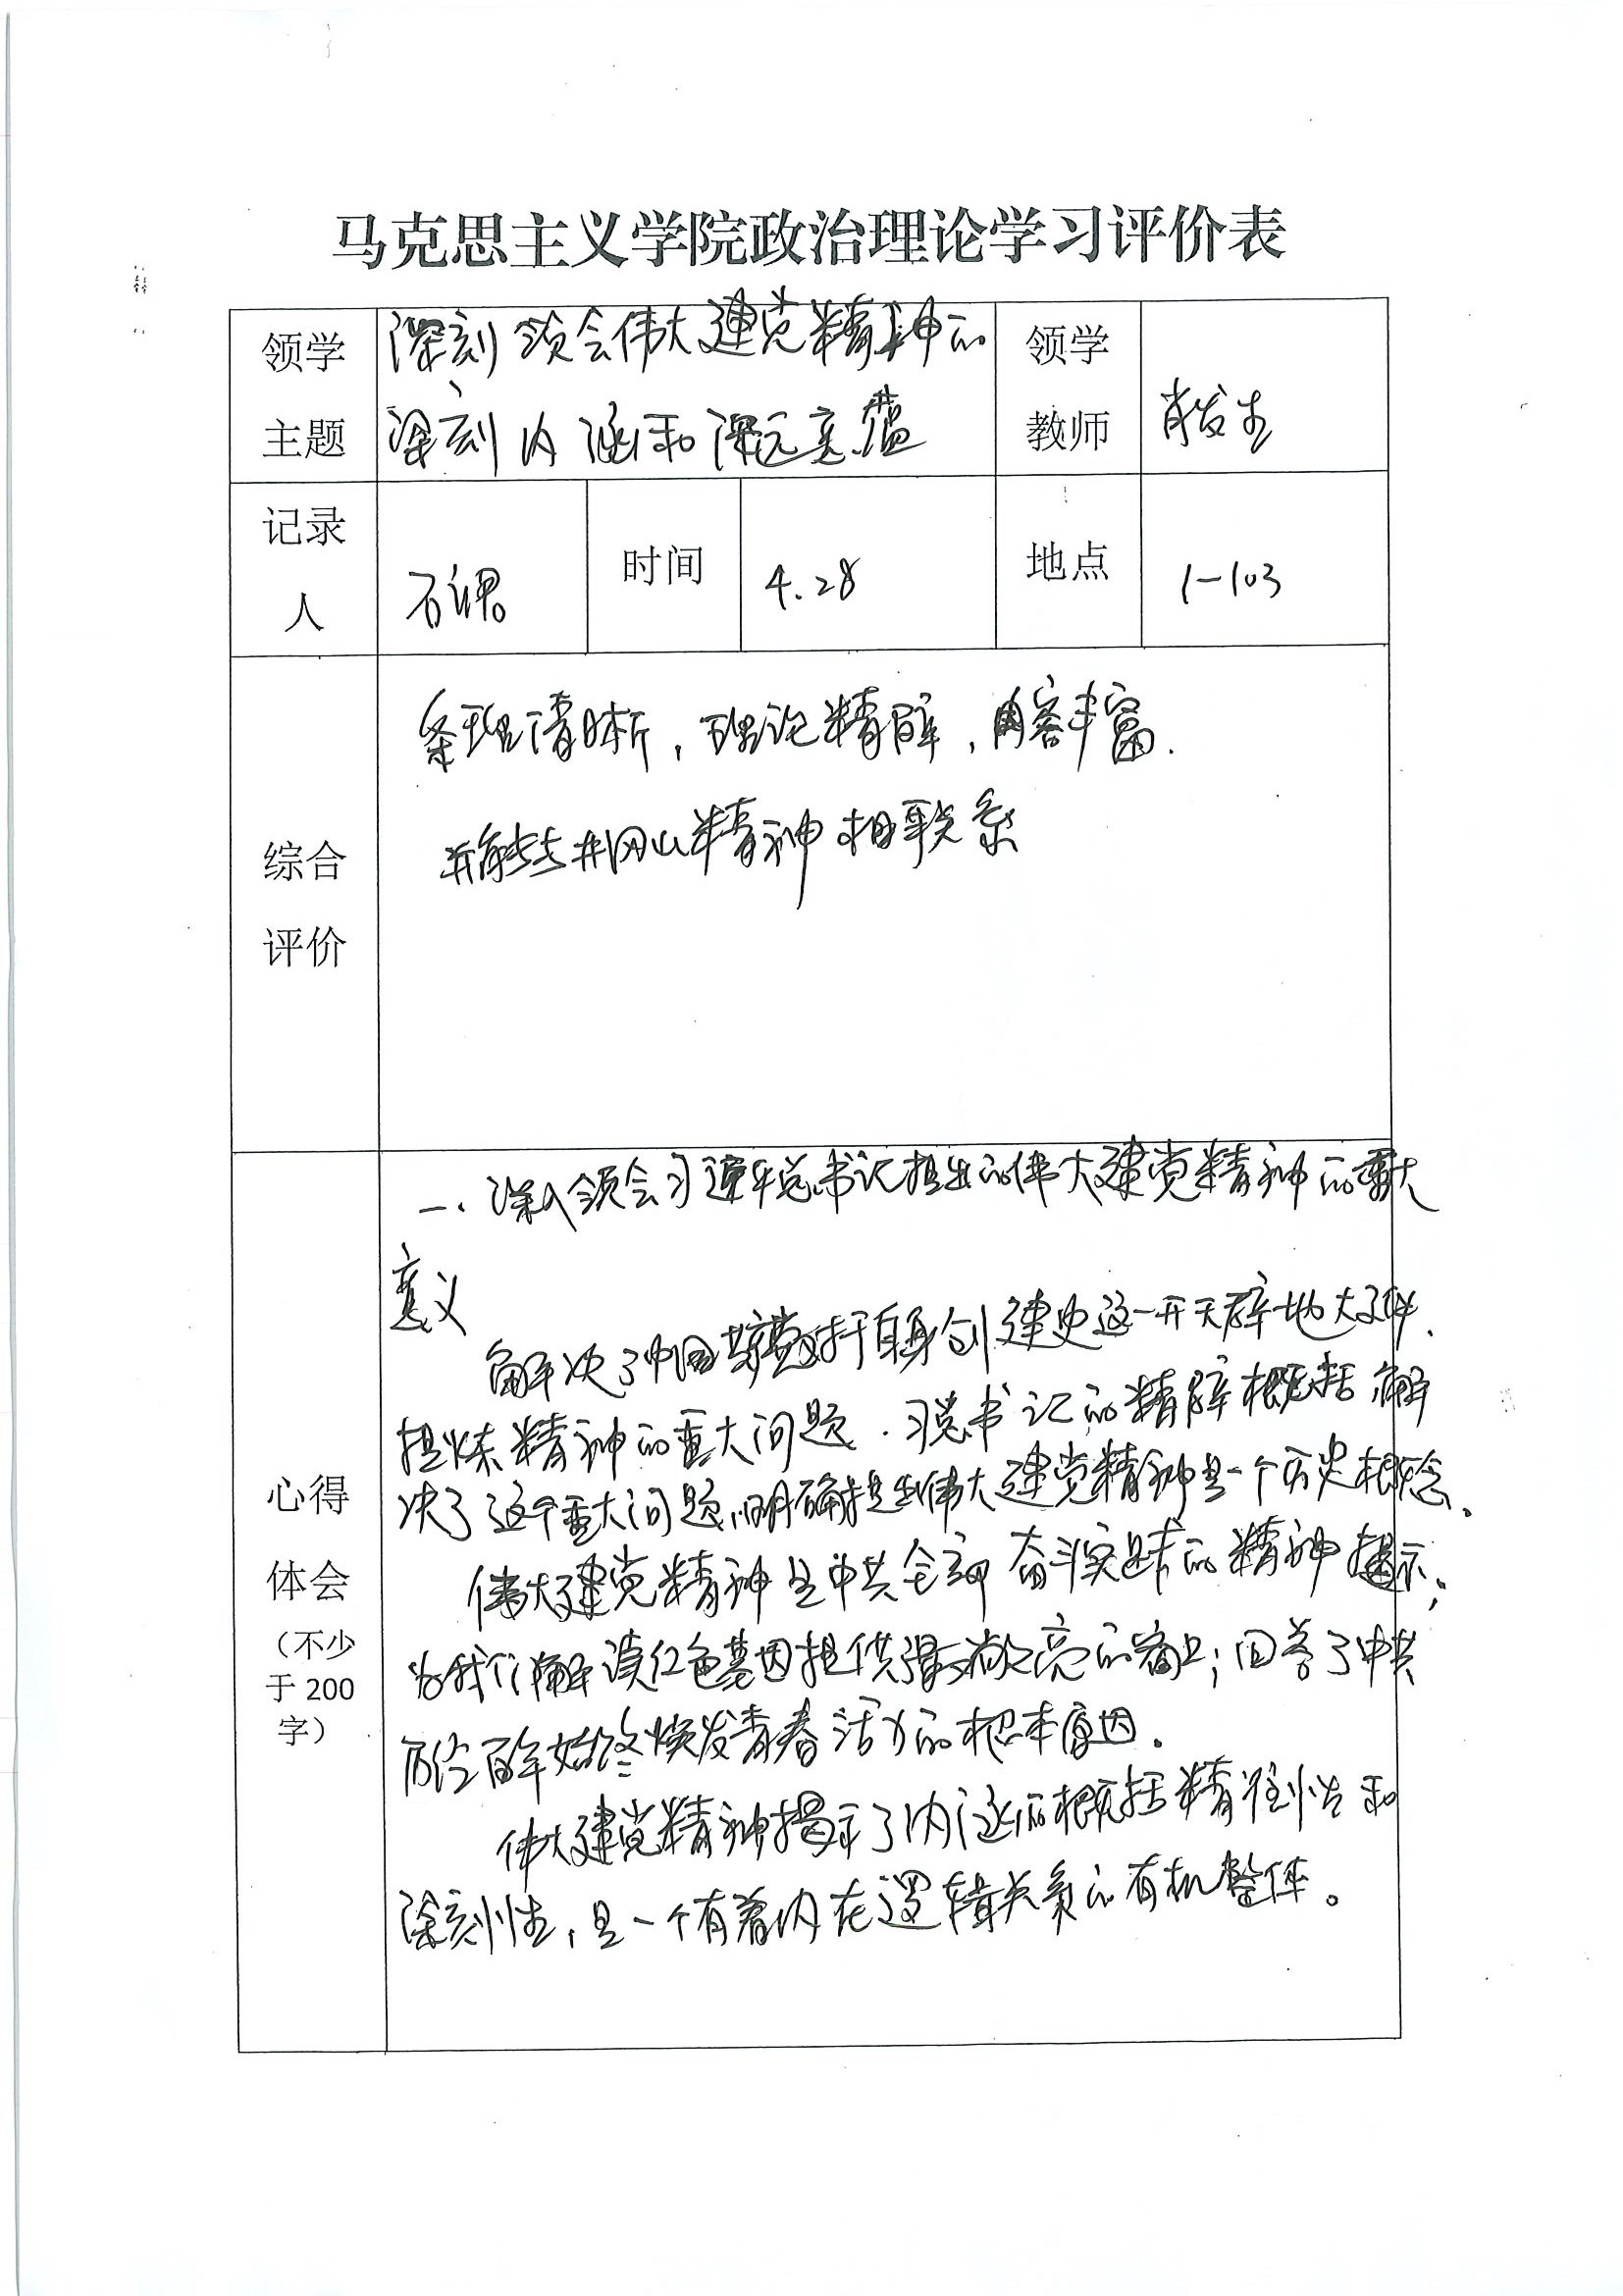 马克思主义学院政治理论学习评价表
领学
主题
深刻领会伟大建党精神的
深刻内涵和深远意蕴
领学
教师
肖发生
记录
人
石
时间
4.28
地点
1-103
综合
评价
条理清晰，理论精辟，内容丰富.
并能与井冈山精神相联系
心得
体会
（不少
于200
字）
一、深入领会习近平总书记提出的伟大建党精神的重大
意义
解决了中国共产党对于自身创建史这一开天辟地大事件、
提炼精神的重大问题. 习总书记的精辟概括解
决了这个重大问题，明确提出伟大建党精神是一个历史概念。
伟大建党精神是中共全部奋斗实践的精神揭示；
为我们解读红色基因提供了最亮的窗口；回答了中共
历经百年始终焕发青春活力的根本原因。
伟大建党精神揭示了内涵的概括精准性和
深刻性，是一个有着内在逻辑关系的有机整体。